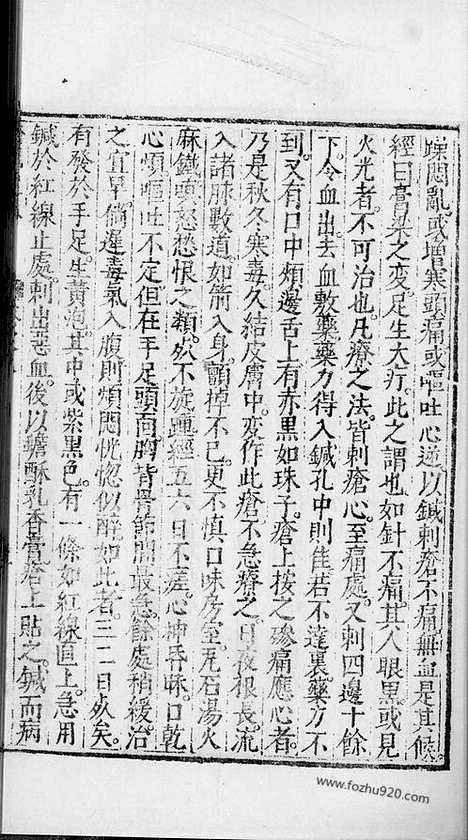 躁悶亂或增寒頭痛或嘔吐心逆以鍼刺瘡不痛無血是其候
經曰膏粱之變足生大疔此之謂也如針不痛其人眼黑或見
火光者不可治也凡療之法皆刺瘡心至痛處又刺四邊十餘
下令血出去血敷藥藥力得入鍼孔中則佳若不達裏藥力不
到又有口中頰邊舌上有赤黑如珠子瘡上按之痠痛應心者
乃是秋冬寒毒久結皮膚中變作此瘡不急療之日夜根長流
入諸脉數道如箭入身顫掉不已更不慎口味房室瓦石湯火
麻鐵嗔怒愁恨之類然不旋踵經五六日不瘥心神昏昧口乾
心煩嘔吐不定但在手足頭面胸背骨節間最急餘處稍緩治
之宜早倘遲毒氣入腹則煩悶恍惚似醉如此者三二日歿矣
有發於手足生黃泡其中或紫黑色有一條如紅線直上急用
鍼於紅線止處刺出惡血後以蟾酥乳香膏瘡上貼之鍼而病
www.fozhu920.com